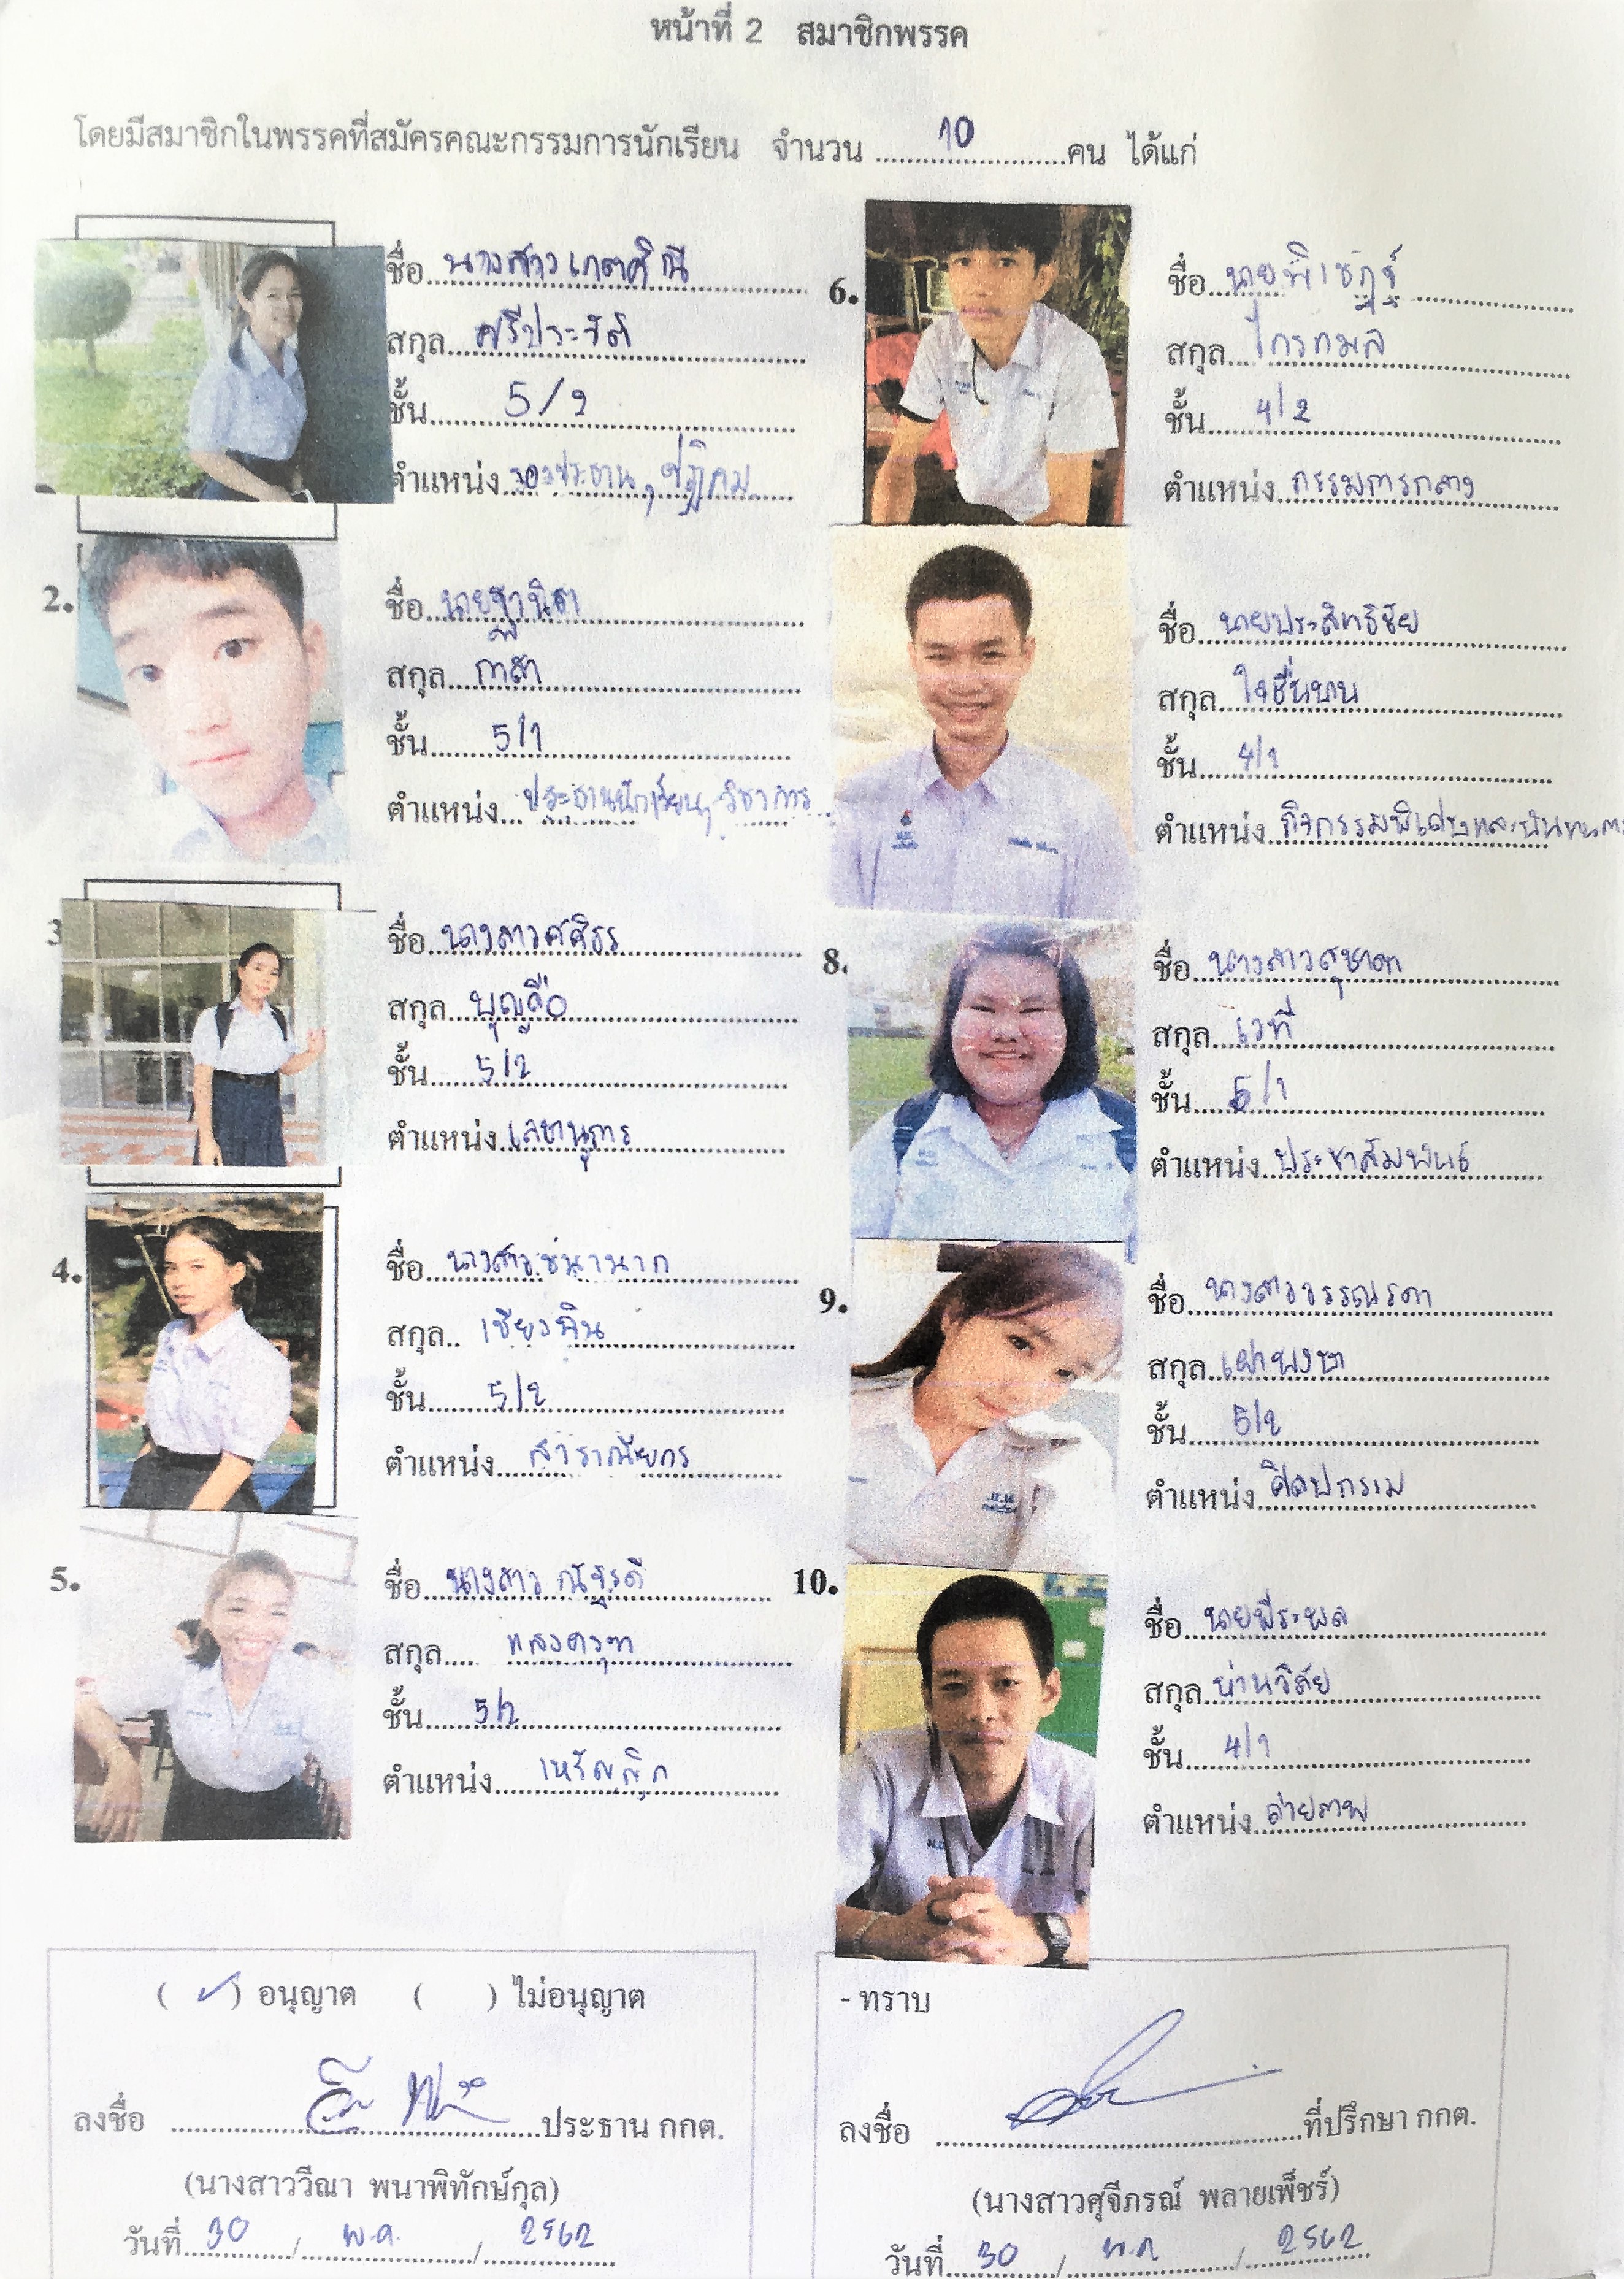 หน้าที่ 2 สมาชิกพรรค
โดยมีสมาชิกในพรรคที่สมัครคณะกรรมการนักเรียน จำนวน 10 คน ได้แก่
ชื่อ นางสาวเกตศิณี
สกุล ศรีประจักษ์
ชั้น 5/2
ตำแหน่ง รองประธาน, ปฏิคม
2.
ชื่อ นาย
สกุล กาสา
ชั้น 5/1
ตำแหน่ง ประธานนักเรียน, วิชาการ
3
ชื่อ นางสาวศศิธร
สกุล
ชั้น 5/2
ตำแหน่ง เลขานุการ
4.
ชื่อ นางสาว
สกุล
ชั้น 5/2
ตำแหน่ง สาราณียกร
5.
ชื่อ นางสาว ณัฐรดี
สกุล แสงครุฑ
ชั้น 5/2
ตำแหน่ง เหรัญญิก
6.
ชื่อ นายพิเชฏฐ์
สกุล ไกรกมล
ชั้น 4/2
ตำแหน่ง กรรมการกลาง
ชื่อ นายประสิทธิชัย
สกุล ใจชื่นบาน
ชั้น 4/1
ตำแหน่ง กิจกรรมพิเศษและ
8.
ชื่อ นางสาวสุชาดา
สกุล เวที
ชั้น 5/1
ตำแหน่ง ประชาสัมพันธ์
9.
ชื่อ นางสาววรรณรดา
สกุล เผ่าพงษา
ชั้น 5/2
ตำแหน่ง ศิลปกรรม
10.
ชื่อ นายพีระพล
สกุล
ชั้น 4/1
ตำแหน่ง ถ่ายภาพ
( ✓ ) อนุญาต ( ) ไม่อนุญาต
ลงชื่อ ประธาน กกต.
(นางสาววีณา พนาพิทักษ์กุล)
วันที่ 30 / พ.ค. / 2562
- ทราบ
ลงชื่อ ที่ปรึกษา กกต.
(นางสาวศุจีภรณ์ พลายเพ็ชร์)
วันที่ 30 / พ.ค / 2562